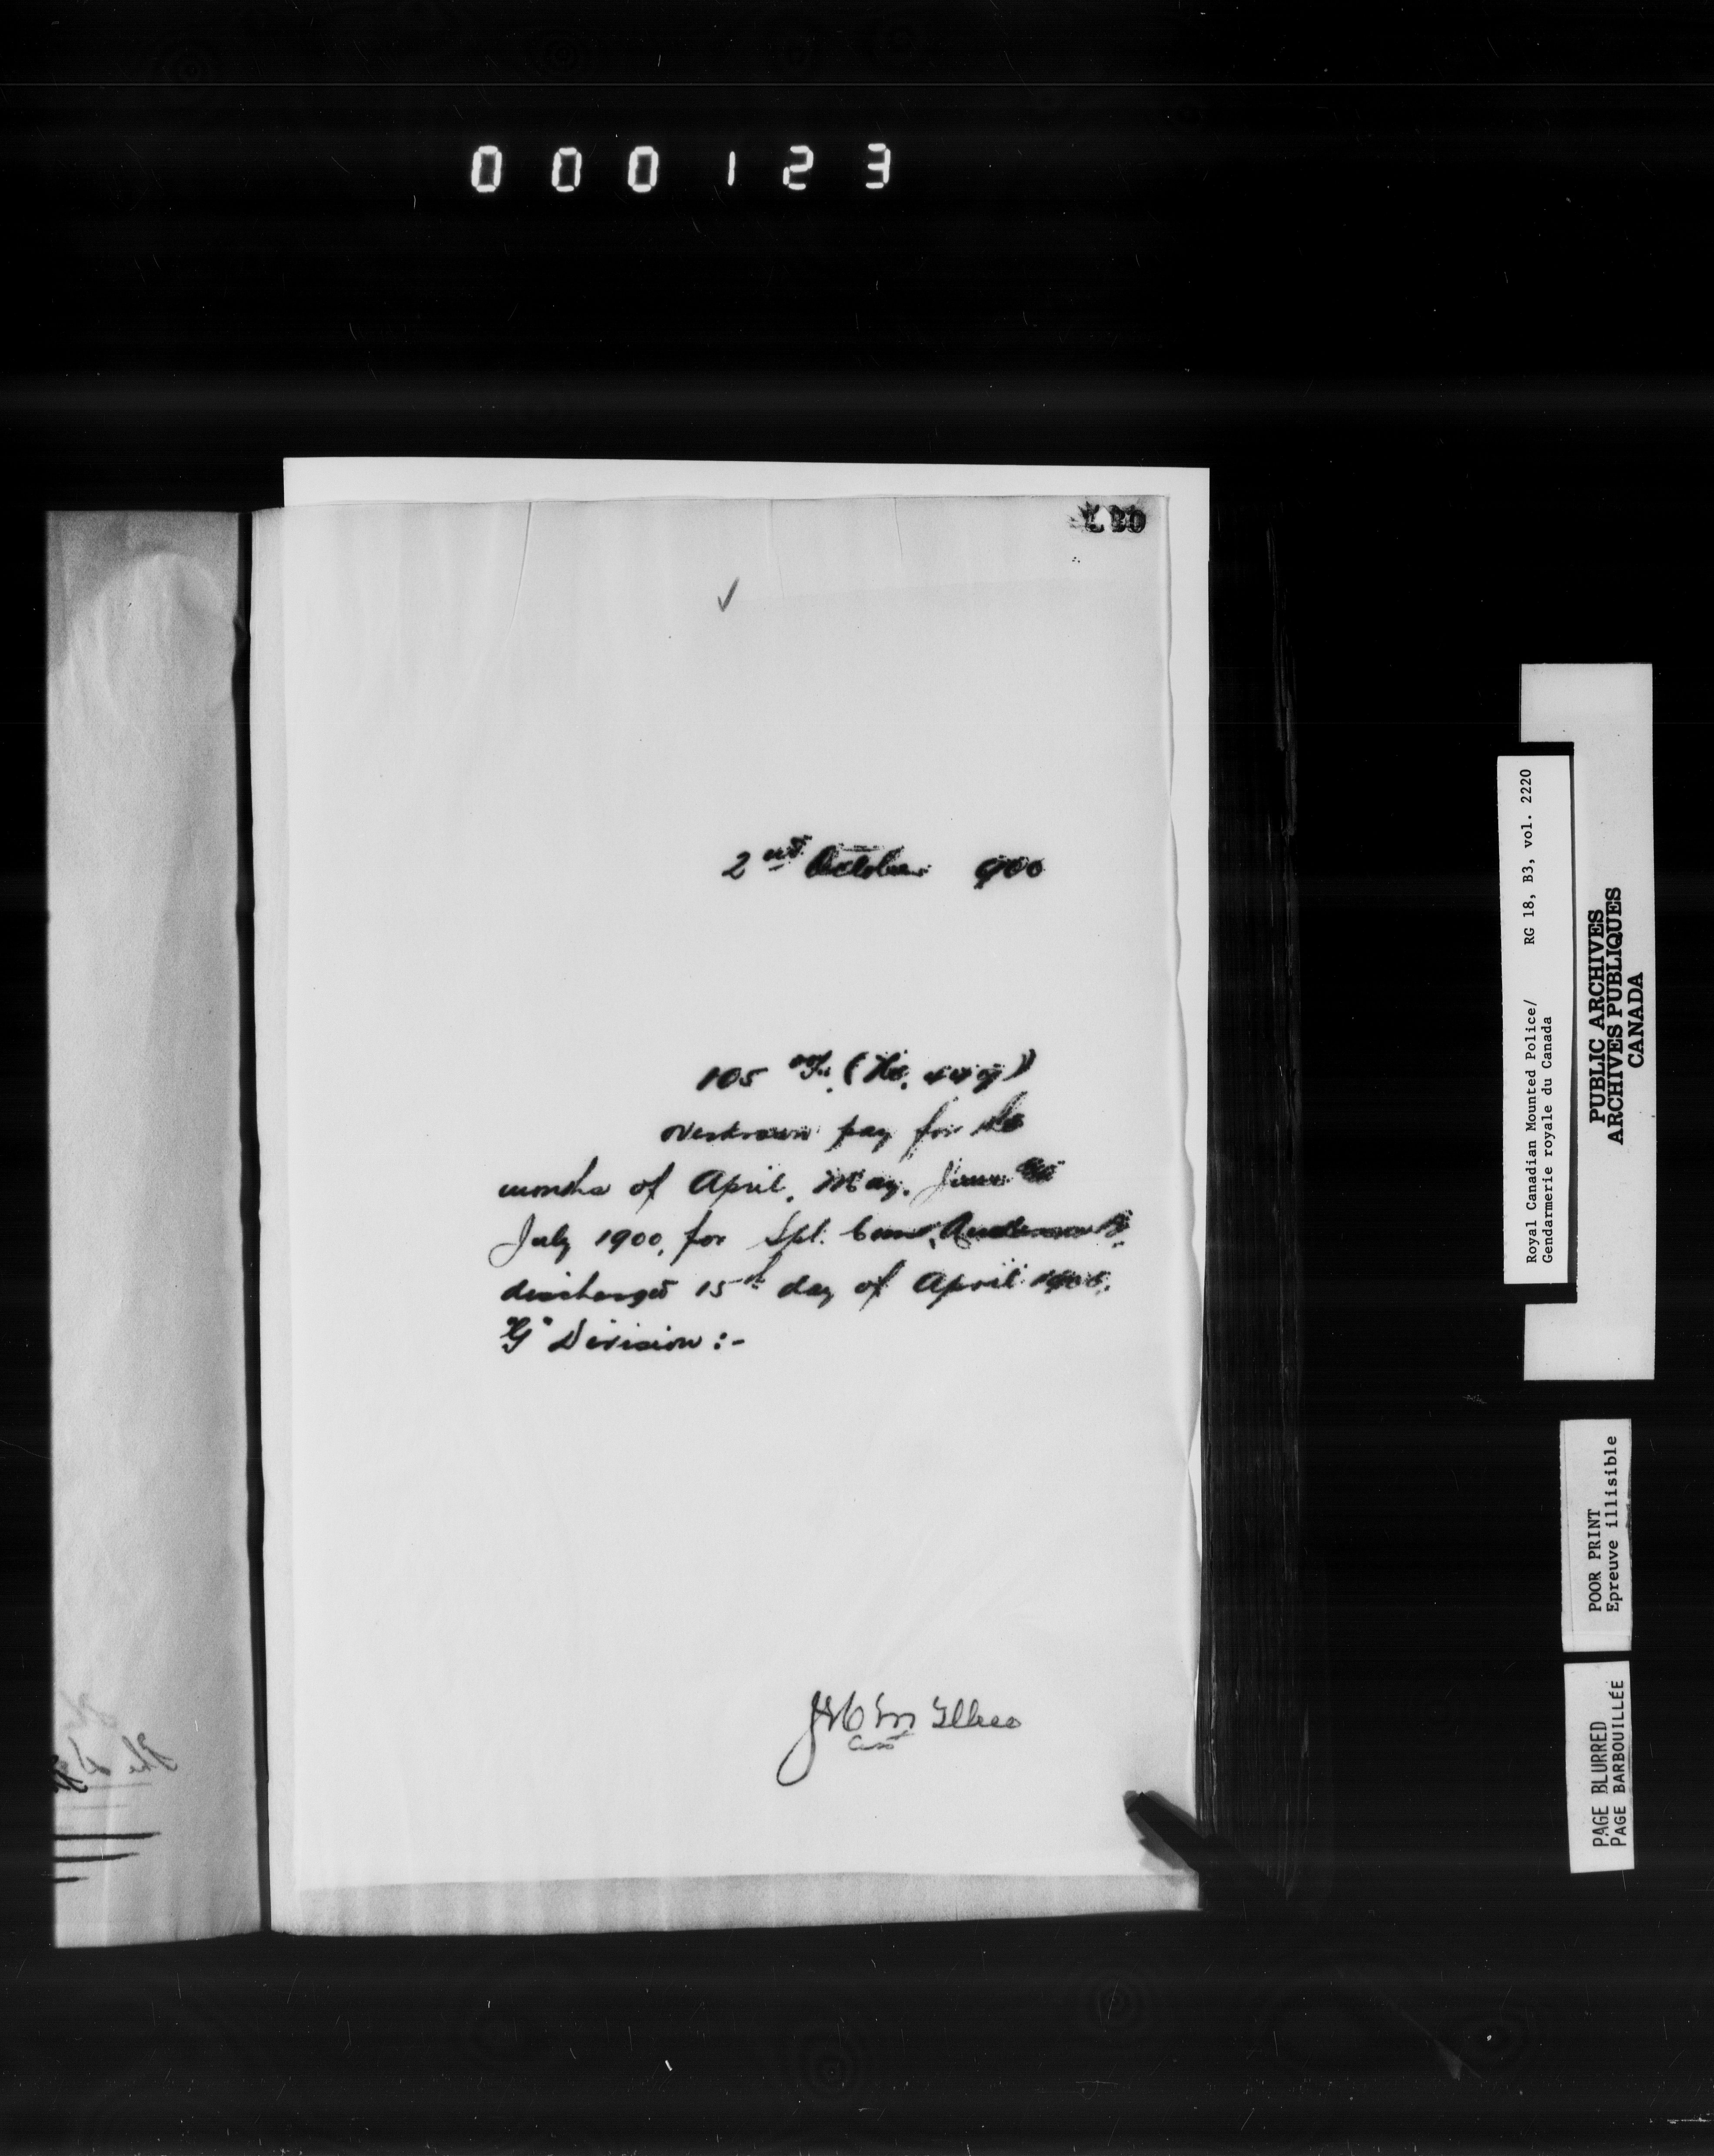 000123
2nd October 900
105
overdrawn pay for the
months of April, May, June &
July 1900, for Spl. Const. Anderson
discharged 15th day of April 1900.
"G" Division :-
Royal Canadian Mounted Police/ RG 18, B3, vol. 2220
Gendarmerie royale du Canada
PUBLIC ARCHIVES
ARCHIVES PUBLIQUES
CANADA
POOR PRINT
Epreuve illisible
PAGE BLURRED
PAGE BARBOUILLÉE